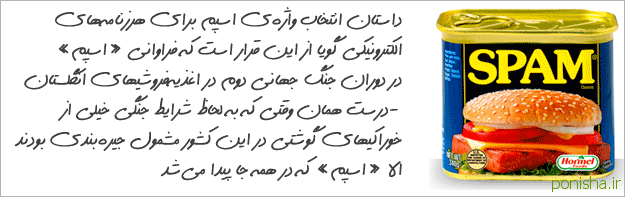 داستان انتخاب واژه‌ی اسپم برای هرزنامه‌های
الکترونیکی گویا از این قرار است که فراوانی «اسپم»
در دوران جنگ جهانی دوم در اغذیه‌فروشیهای انگلستان
-درست همان وقتی که به لحاظ شرایط جنگی خیلی از
خوراکیهای گوشتی در این کشور مشمول جیره‌بندی بودند
الا «اسپم» که در همه جا پیدا می‌شد
SPAM
Classic
Hormel
Foods
ponisha.ir